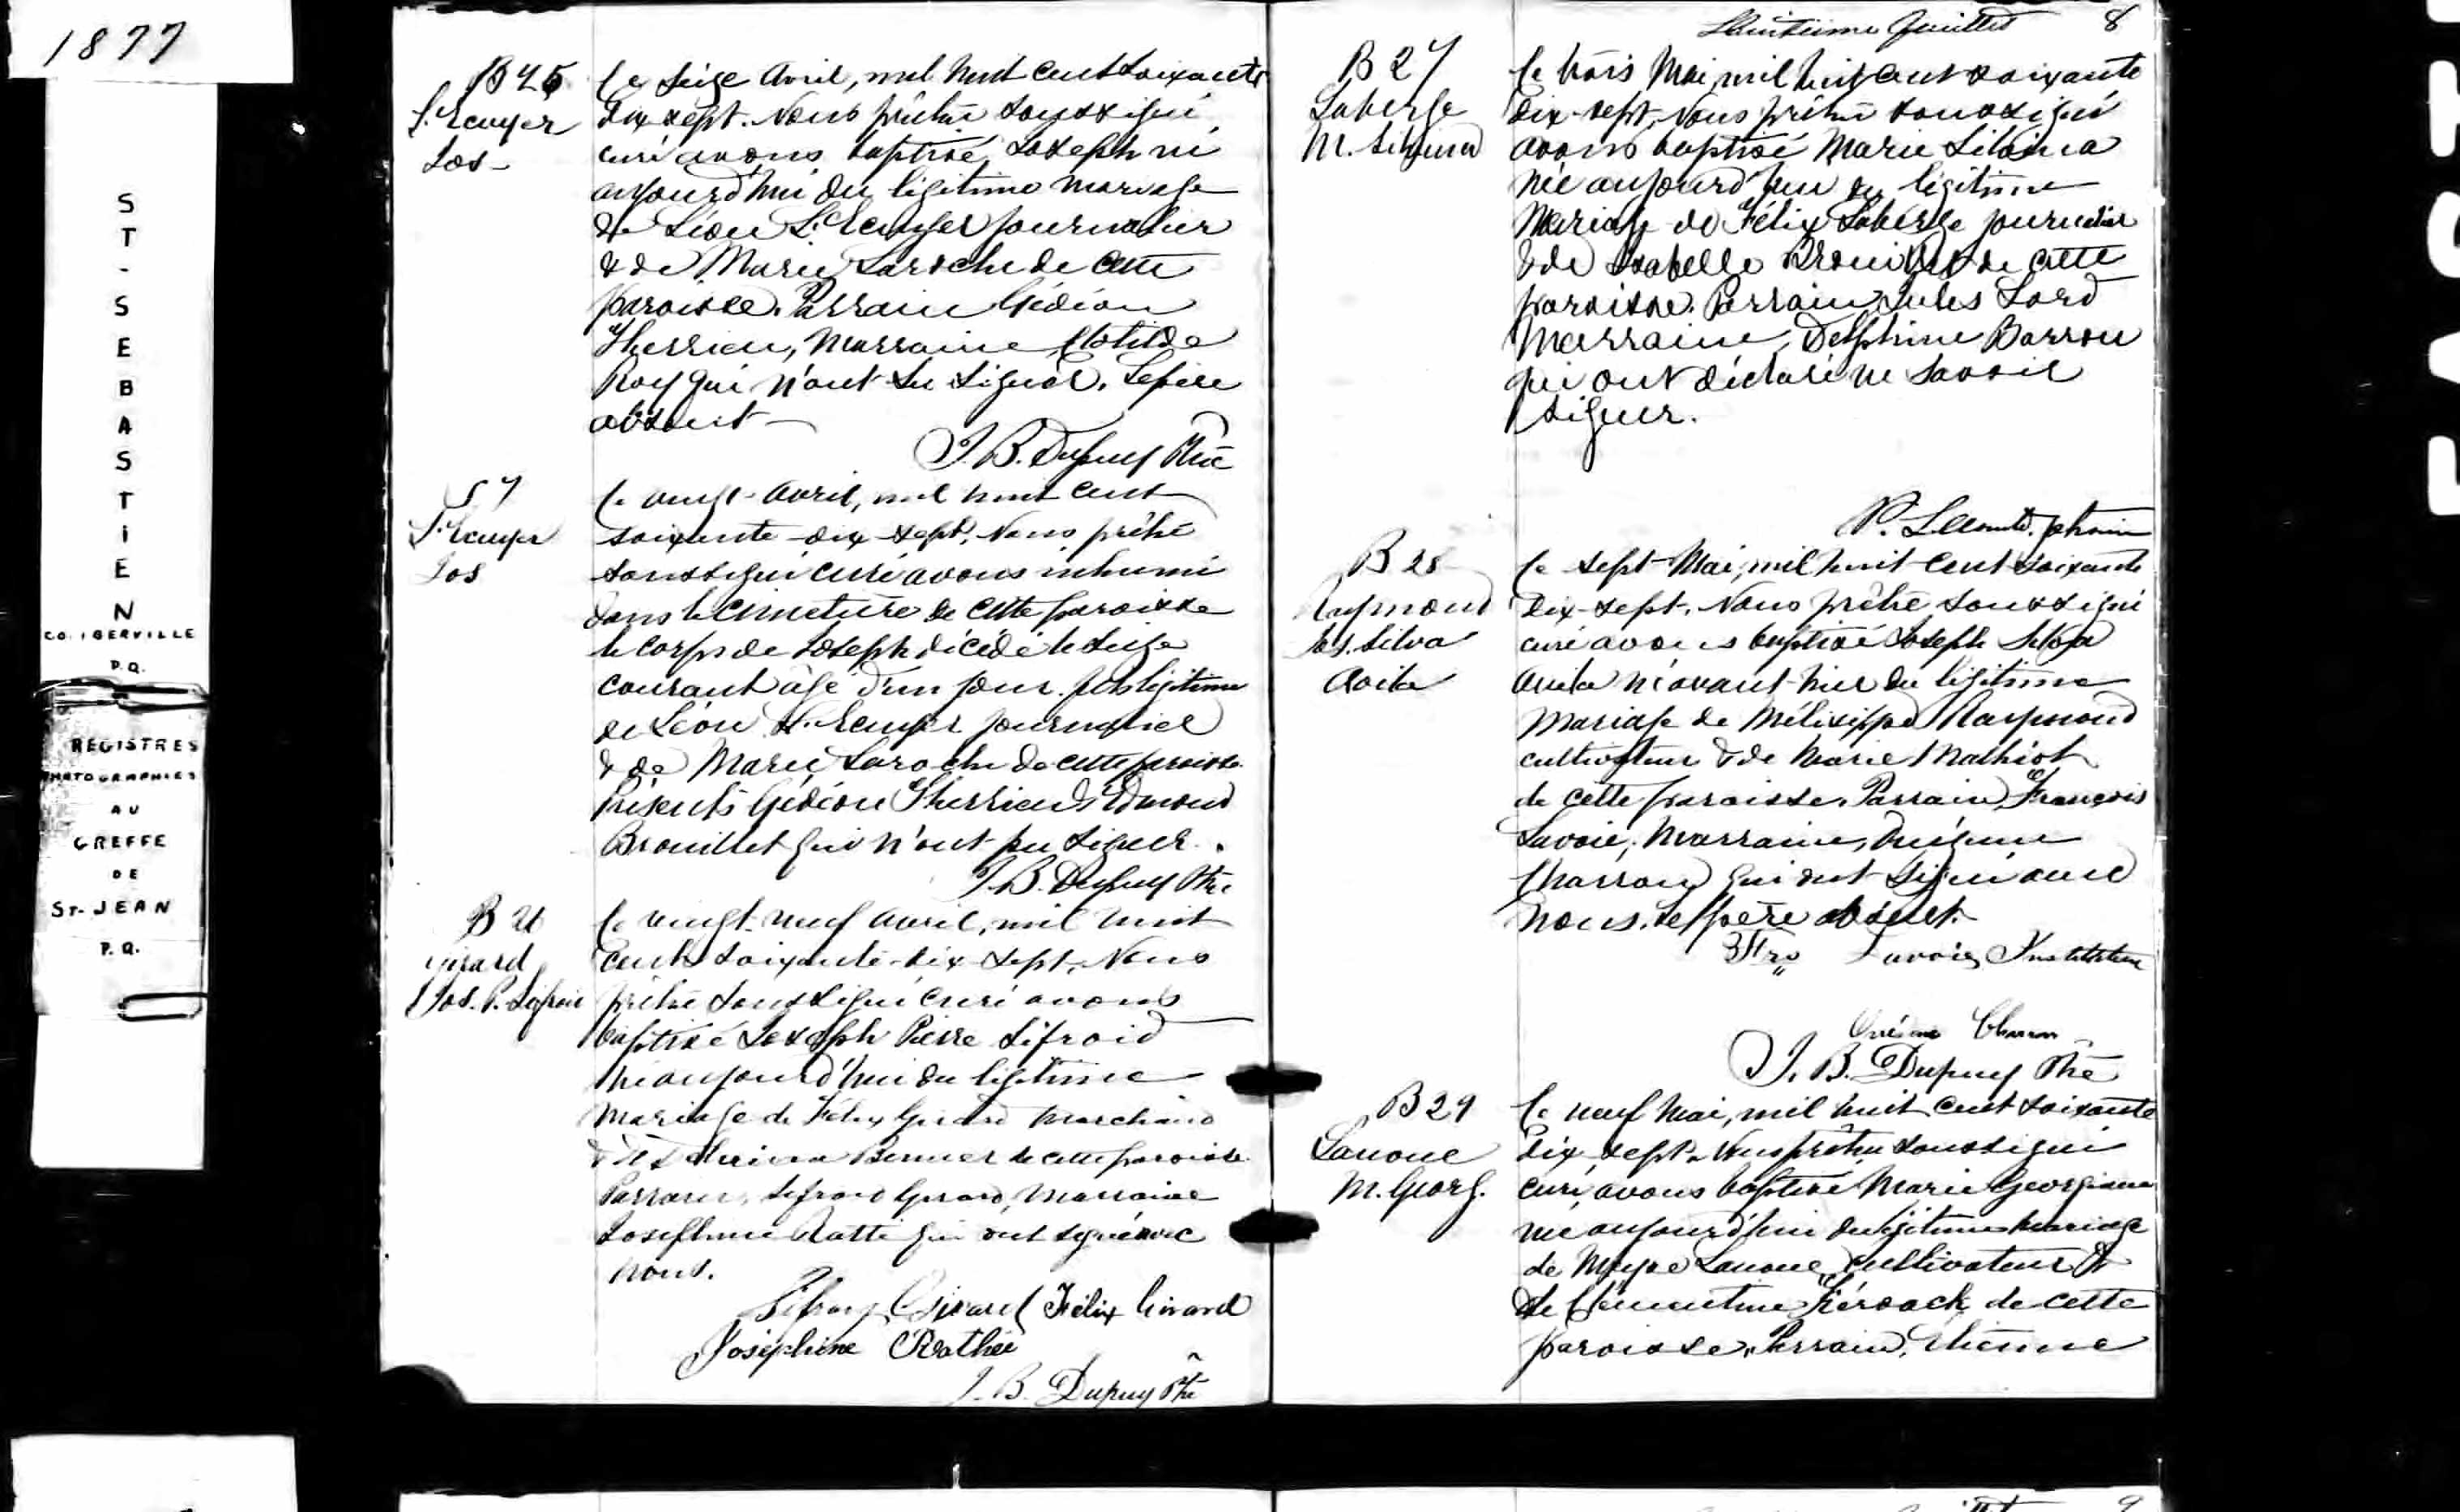 1877
ST-SEBASTIEN
CO. IBERVILLE
P.Q.
REGISTRES
PHOTOGRAPHIES
AU
GREFFE
DE
ST-JEAN
P.Q.
B 25
L'Ecuyer
Jos
Le seize Avril, mil huit cent soixante
dix sept. Nous prêtre soussigné
curé avons baptisé Joseph né
aujourd'hui du légitime mariage
de Léon L'Ecuyer journalier
& de Marie Laroche de cette
paroisse. Parrain Gédéon
Therrien, Marraine Clotilde
Roy qui n'ont su signer. Le père
absent
J. B. Dupuy Ptre
S 7
L'Ecuyer
Jos
Le vingt Avril, mil huit cent
soixante-dix-sept, Nous prêtre
soussigné curé avons inhumé
dans le cimetière de cette paroisse
le corps de Joseph décédé le seize
courant âgé d'un jour fils légitime
de Léon L'Ecuyer journalier
& de Marie Laroche de cette paroisse
Présents Gédéon Therrien & Edmond
Brouillet qui n'ont pu signer.
J. B. Dupuy Ptre
B 26
Girard
Jos. P. Sifroid
Le vingt-neuf avril, mil huit
cent soixante-dix-sept, Nous
prêtre soussigné curé avons
baptisé Joseph Pierre Sifroid
né aujourd'hui du légitime
mariage de Félix Girard marchand
& de Bernier de cette paroisse
Parrain, Sifroid Girard, Marraine
Josephine qui ont signé avec
nous.
Sifroy Girard Félix Girard
Joséphine Rathé
J. B. Dupuy Ptre
Huitième feuillet 8
B 27
Laberge
M. Libeina
Le trois Mai, mil huit cent soixante
dix-sept, Nous prêtre soussigné
avons baptisé Marie
née aujourd'hui du légitime
Mariage de Félix Laberge journalier
& de Isabelle Brouillet de cette
paroisse. Parrain Jules Lord
Marraine, Delphine Barron
qui ont déclaré ne savoir
signer.
B 28
Raymond
Jos. Silva
Le sept Mai, mil huit cent soixante
dix-sept. Nous prêtre soussigné
curé avons baptisé Joseph Silva
né avant-hier du légitime
Mariage de Raymond
cultivateur & de Marie Mathiot
de cette paroisse. Parrain, François
Lavoie, Marraine, Onésime
Charron qui ont signé avec
nous. Le père absent.
Frs Lavoie, Instituteur
Onésime Charron
J. B. Dupuy Ptre
B 29
Lanoue
M. Georg.
Le neuf Mai, mil huit cent soixante
dix-sept, Nous prêtre soussigné
curé, avons baptisé Marie Georgiana
née aujourd'hui du légitime mariage
de Lanoue cultivateur &
de Clémentine de cette
paroisse. Parrain, Etienne
9